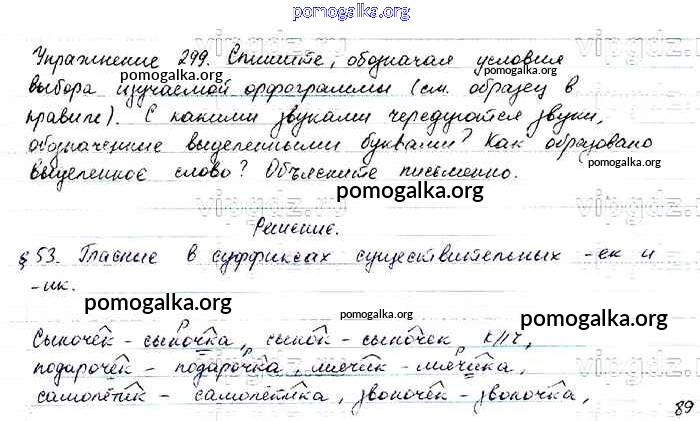 pomogalka.org
Упражнение 299. Спишите, обозначая условия
выбора изучаемой орфограммы (см. образец в
правиле). С какими звуками чередуются звуки,
обозначенные выделенными буквами? Как образовано
выделенное слово? Объясните письменно.
Решение.
§ 53. Гласные в суффиксах существительных -ек и
-ик.
Сыночек - сыночка, сынок - сыночек, к//ч,
подарочек - подарочка, мячик - мячика,
самолётик - самолётика, звоночек - звоночка,
89
pomogalka.org
pomogalka.org
pomogalka.org
pomogalka.org
pomogalka.org
pomogalka.org
pomogalka.org
vipgdz.ru
vipgdz.ru